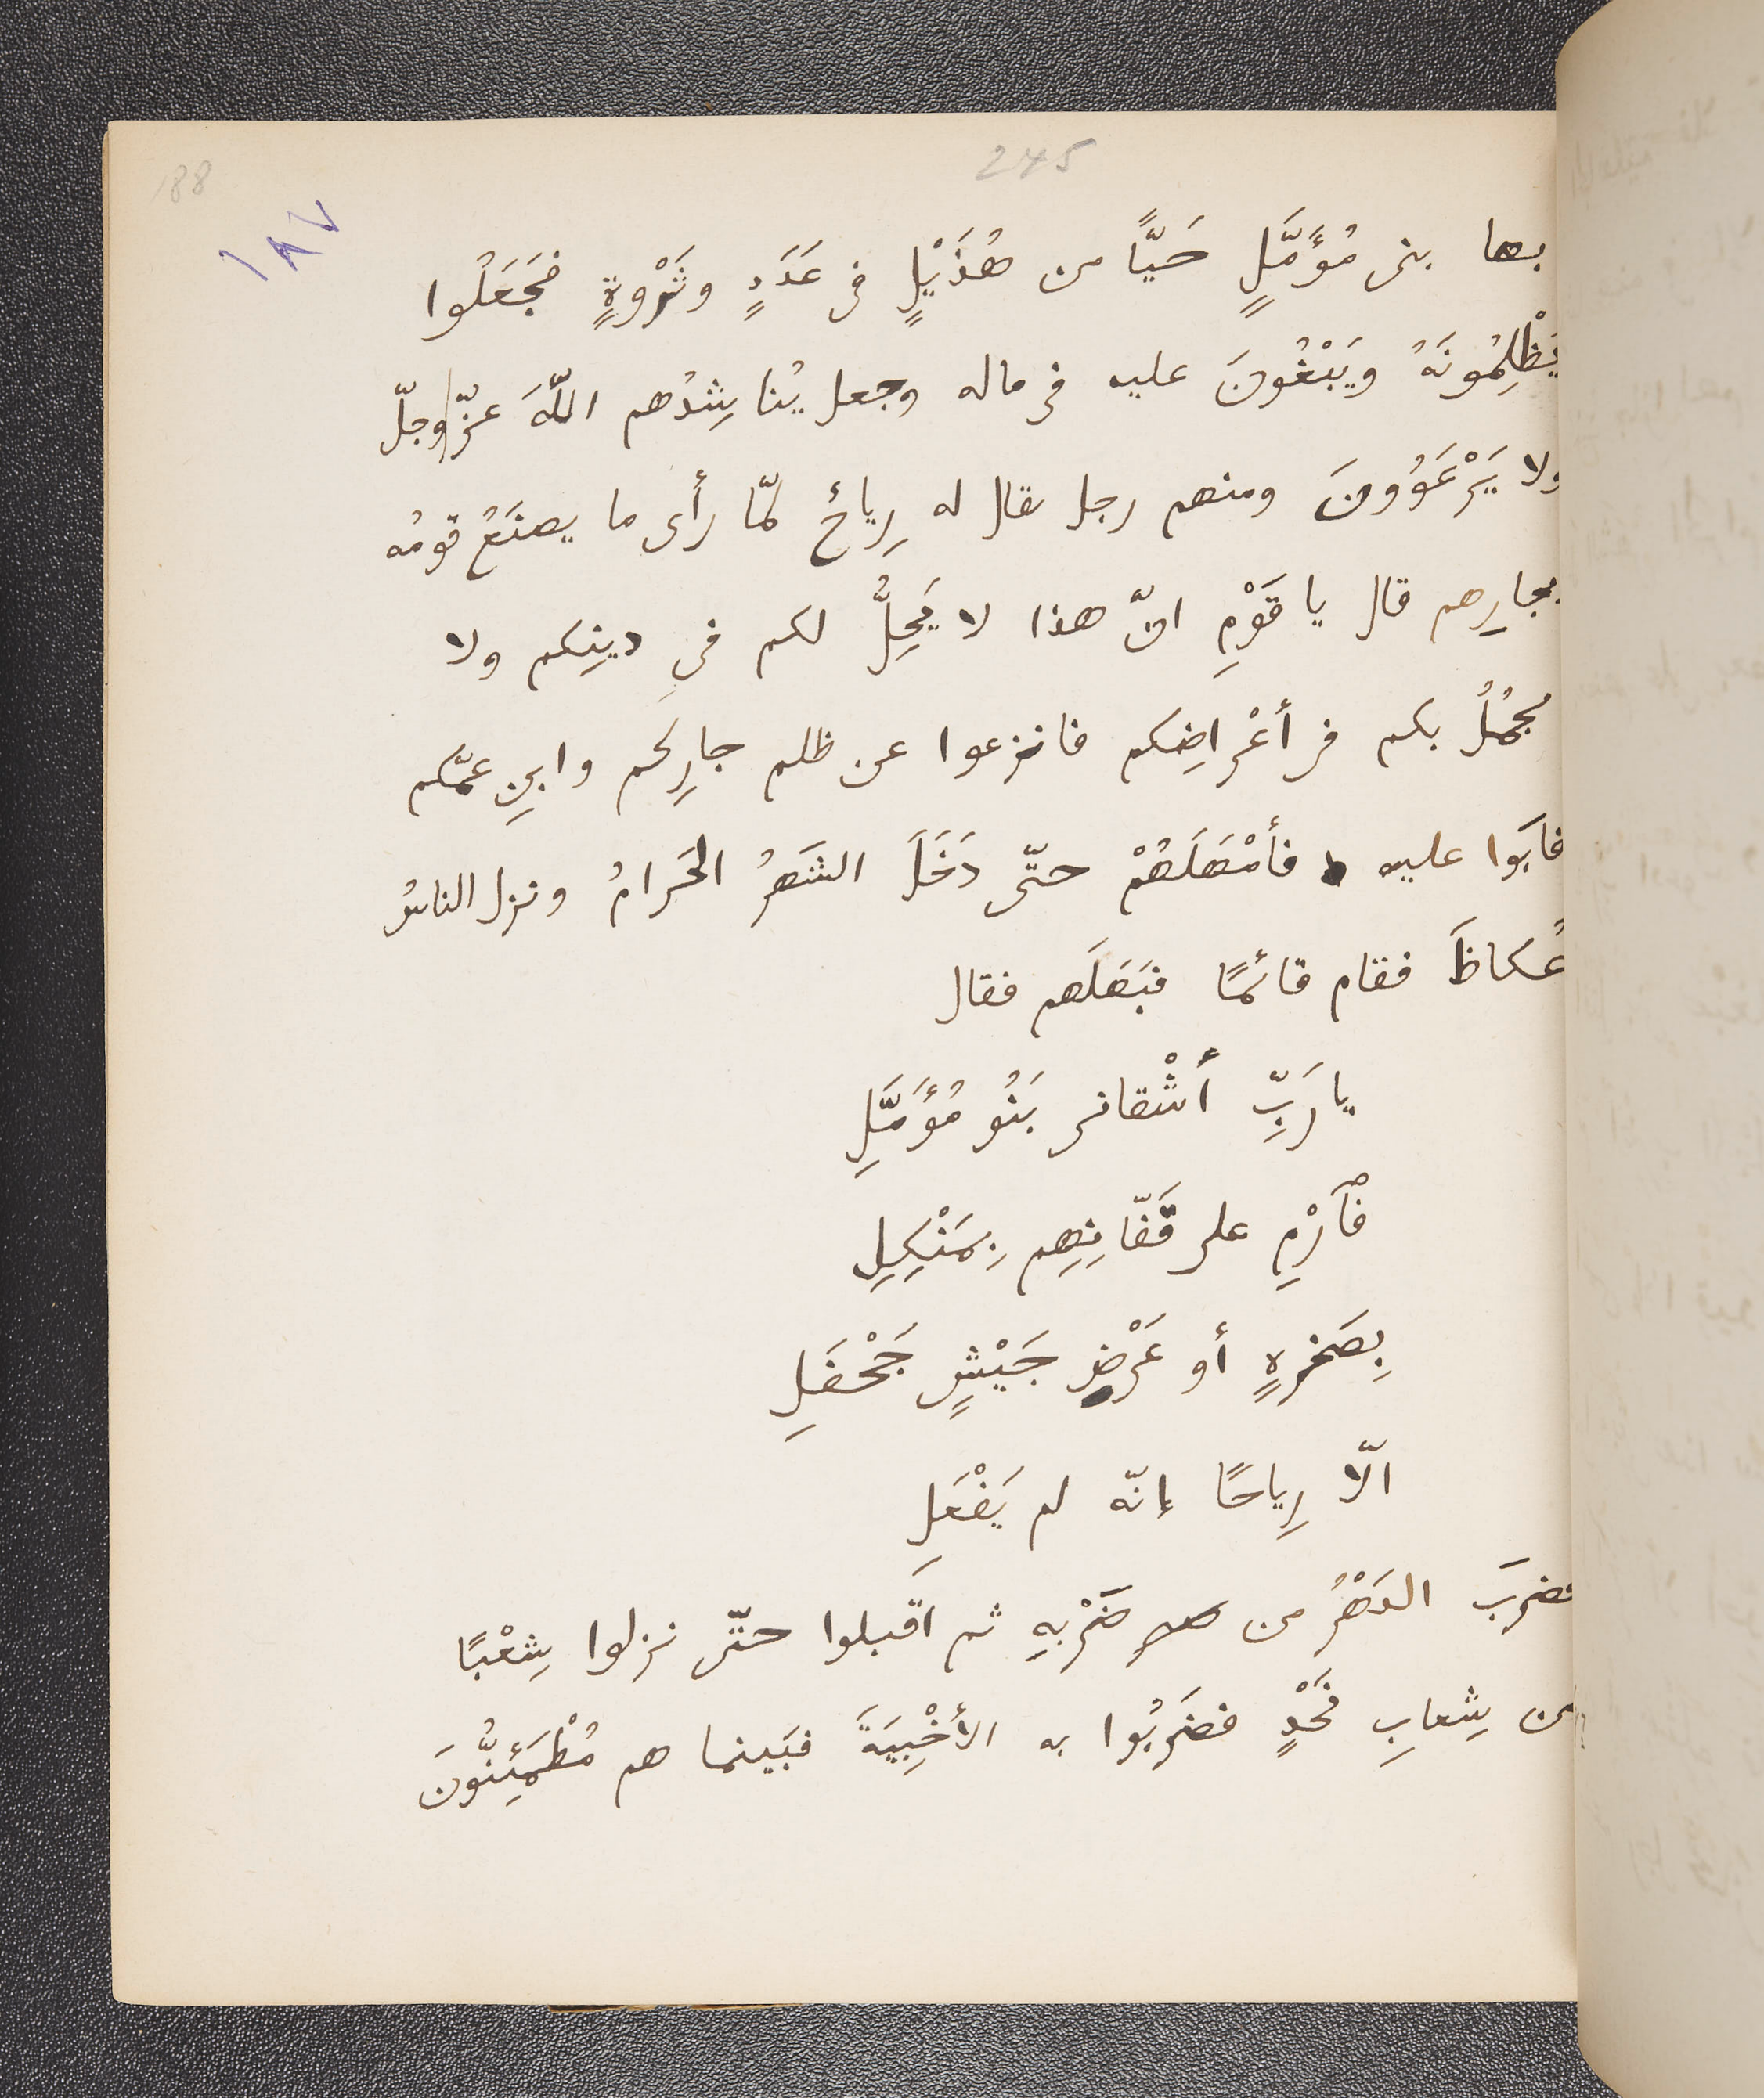 245
188
١٨٧
بها بنى مُؤَمَّلٍ حَيًّا من هُذَيْلٍ فى عَدَدٍ وثَرْوةٍ فجَعَلُوا
يَظْلِمُونَهُ ويَبْغُونَ عليه فى ماله وجعل يُناشِدُهم اللّهَ عزّ وجلّ
ولا يَرْعَوُونَ ومنهم رجل يقال له رِياحٌ لمّا رأى ما يصنَعُ قومُه
بجارِهم قال يا قَوْمِ انّ هذا لا يَحِلُّ لكم فى دينِكم ولا
يجمُلُ بكم فى أعْراضِكم فانزعوا عن ظلم جارِكم وابنِ عمّكم
فأبَوا عليه فأمْهَلَهُمْ حتّى دَخَلَ الشَهرُ الحَرامُ ونزل الناسُ
عُكاظَ فقام قائمًا فبَهَلَهم فقال
يا رَبِّ أشْقانى بَنُو مُؤَمَّلِ
فٱرْمِ على قَفّانِهِم بِمَنْكِلِ
بِصَخرةٍ أو عَرْضِ جَيْشٍ جَحْفَلِ
الّا رِياحًا إنّه لم يَفْعَلِ
فضرَبَ الدَهْرُ من ضَرْبِهِ ثم اقبلوا حتّى نزلوا شِعْبًا
من شِعابِ نَجْدٍ فضَرَبُوا به الأخْبِيَةَ فبَينما هم مُطْمَئِنُّونَ